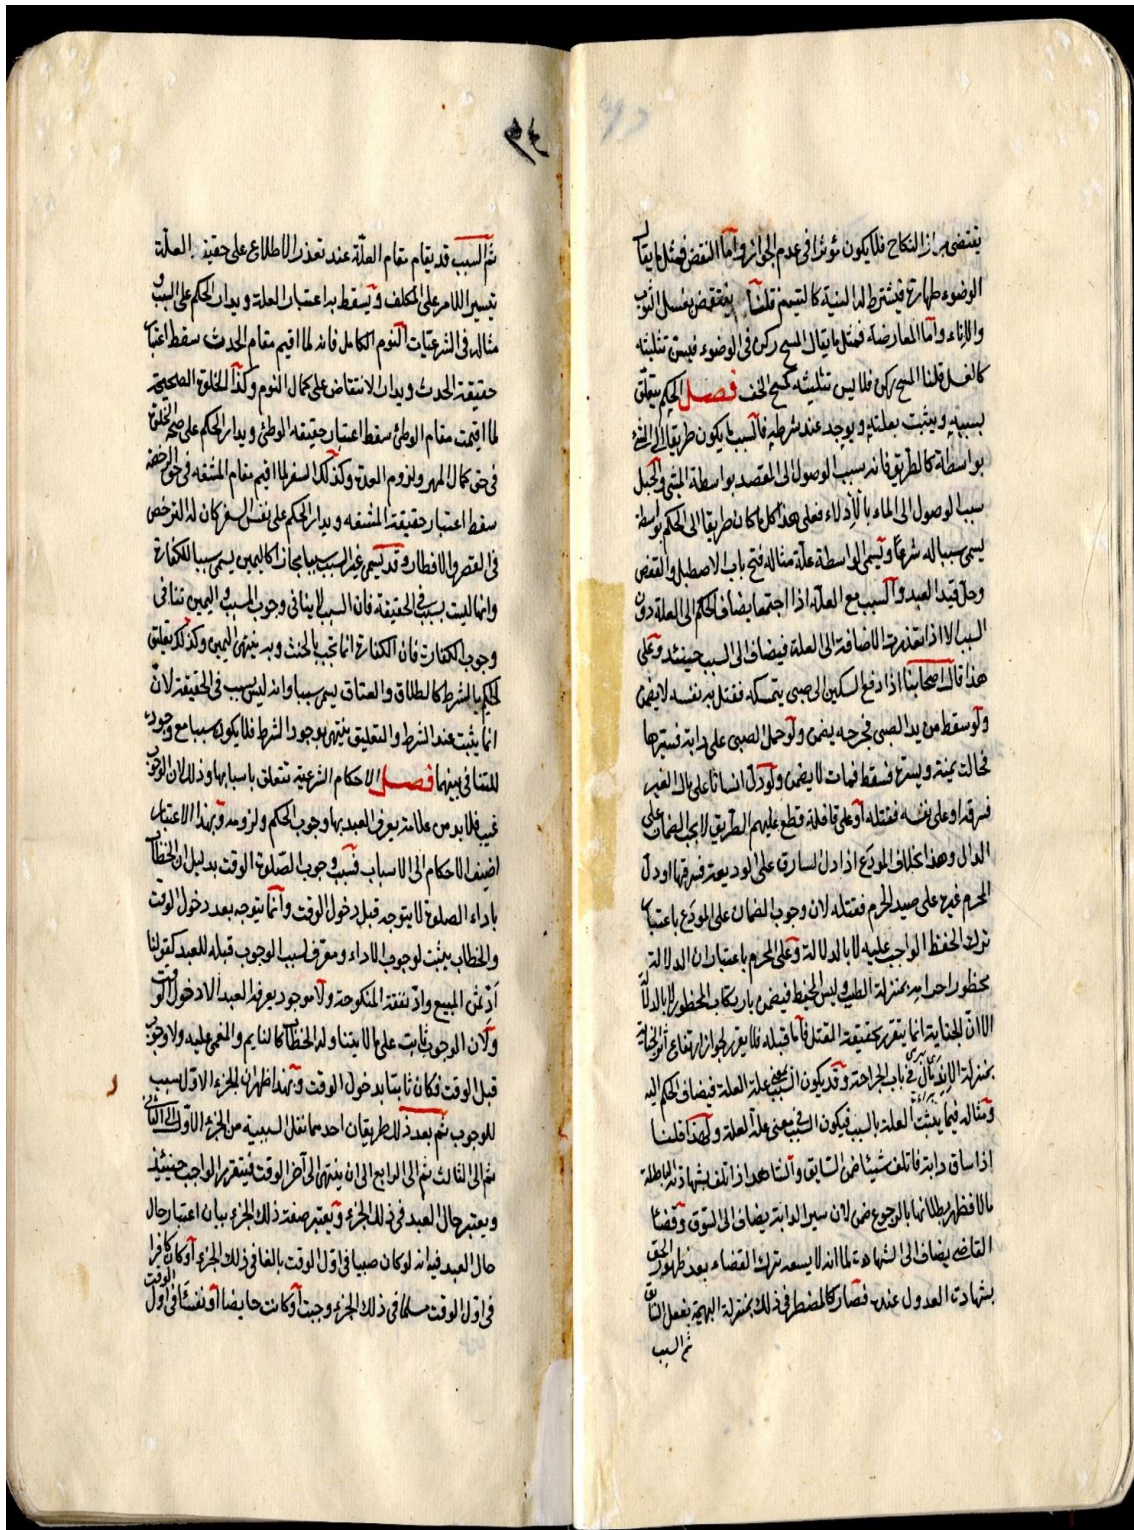 يقتضى جواز النكاح فلا يكون مؤثرا فى عدم الجواز واما النقض فمثل ما يقال
الوضوء طهارة فيشترط له النية كالتيمم قلنا ينتقض بغسل الثوب
والاناء واما المعارضة فمثل ما يقال المسح ركن فى الوضوء فيسن تثليثه
كالغسل قلنا المسح ركن فلا يسن تثليثه كمسح الخف فصل الحكم يتعلق
بسببه ويثبت بعلته ويوجد عند شرطه فالسبب ما يكون طريقا الى الشئ
بواسطة كالطريق فانه سبب الوصول الى المقصد بواسطة المشى والحبل
سبب الوصول الى الماء بالادلاء فعلى هذا كل ما كان طريقا الى الحكم بواسطة
يسمى سببا له شرعا ويسمى الواسطة علة مثاله فتح باب الاصطبل والقفص
وحل قيد العبد والسبب مع العلة اذا اجتمعا يضاف الحكم الى العلة دون
السبب الا اذا تعذرت الاضافة الى العلة فيضاف الى السبب حينئذ وعلى
هذا قال اصحابنا اذا دفع السكين الى صبى يتمسكه فقتل به نفسه لا يضمن
ولو سقط من يد الصبى فجرحه يضمن ولو حمل الصبى على دابة فسيرها
فجالت يمنة ويسرة فسقط فمات لا يضمن ولو دل انسانا على مال الغير
فسرقه او على نفسه فقتله او على قافلة قطع عليهم الطريق لا يجب الضمان على
الدال وهذا بخلاف المودع اذا دل السارق على الوديعة فسرقها او دل
المحرم غيره على صيد الحرم فقتله لان وجوب الضمان على المودع باعتبار
ترك الحفظ الواجب عليه لا بالدلالة وعلى المحرم باعتبار ان الدلالة
محظور احرامه بمنزلة الطيب ولبس المخيط فيضمن بارتكاب المحظور لا بالدلالة
الا ان الجناية انما يتقرر بحقيقة القتل فاما قبله فلا يقرر لجواز ارتفاع اثر الجناية
بمنزلة الاندمال فى باب الجراحة وقد يكون السبب بمعنى علة العلة فيضاف الحكم اليه
ومثاله فيما يثبت العلة بالسبب فيكون السبب فى معنى علة العلة ولهذا قلنا
اذا ساق دابة فاتلف شيئا ضمن السايق والشاهد اذا اتلف بشهادته الباطلة
مالا فظهر بطلانها بالرجوع ضمن لان سير الدابة يضاف الى السوق وقضاء
القاضى يضاف الى الشهادة لما انه لا يسعه ترك القضاء بعد ظهور الحق
بشهادة العدول عنده فصار كالمضطر فى ذلك بمنزلة البهيمة بفعل السائق
ثم السبب
ثم السبب قد يقام مقام العلة عند تعذر الاطلاع على حقيقة العلة
تيسيرا للامر على المكلف ويسقط به اعتبار العلة ويدار الحكم على السبب و
مثاله فى الشرعيات النوم الكامل فانه لما اقيم مقام الحدث سقط اعتبار
حقيقة الحدث ويدار الانتقاض على كمال النوم وكذا الخلوة الصحيحة
لما اقيمت مقام الوطئ سقط اعتبار حقيقة الوطئ ويدار الحكم على صحة الخلوة
فى حق كمال المهر ولزوم العدة وكذلك السفر لما اقيم مقام المشقة فى حق الرخصة
سقط اعتبار حقيقة المشقة ويدار الحكم على نفس السفر كان له الترخص
فى القصر والافطار وقد يسمى غير السبب سببا مجازا كاليمين يسمى سببا للكفارة
وانها ليست بسبب فى الحقيقة فان السبب لا ينافى وجوب المسبب واليمين تنافى
وجوب الكفارة فان الكفارة انما تجب بالحنث وبه ينتهى اليمين وكذلك تعليق
الحكم بالشرط كالطلاق والعتاق يسمى سببا وانه ليس بسبب فى الحقيقة لان
انما يثبت عند الشرط والتعليق ينتهى بوجود الشرط فلا يكون سببا مع وجود
للتنافى بينهما فصل الاحكام الشرعية تتعلق باسبابها وذلك لان الوجوب
غيب فلا بد من علامة يعرف العبد بها وجوب الحكم ولزومه وبهذا الاعتبار
اضيف الاحكام الى الاسباب فسبب وجوب الصلوة الوقت بدليل ان الخطاب
باداء الصلوة لا يتوجه قبل دخول الوقت وانما يتوجه بعد دخول الوقت
والخطاب يثبت لوجوب الاداء ومعرف لسبب الوجوب قبله للعبد كقولنا
اد ثمن المبيع واد نفقة المنكوحة ولا موجود يعرفه العبد الا دخول الوقت
ولان الوجوب ثابت على من لا يتناوله الخطاب كالنايم والمغمى عليه ولا وجوب
قبل الوقت فكان ثابتا بدخول الوقت وبهذا ظهر ان الجزء الاول سبب
للوجوب ثم بعد ذلك طريقان احدهما نقل السببية من الجزء الاول الى الثانى
ثم الى الثالث ثم الى الرابع الى ان ينتهى الى آخر الوقت فيتقرر الواجب حينئذ
ويعتبر حال العبد فى ذلك الجزء ويعتبر صفة ذلك الجزء بيان اعتبار حال
حال العبد فيه انه لو كان صبيا فى اول الوقت بالغا فى ذلك الجزء او كان كافرا
فى اول الوقت مسلما فى ذلك الجزء وجبت او كانت حايضا او نفساء فى اول الوقت